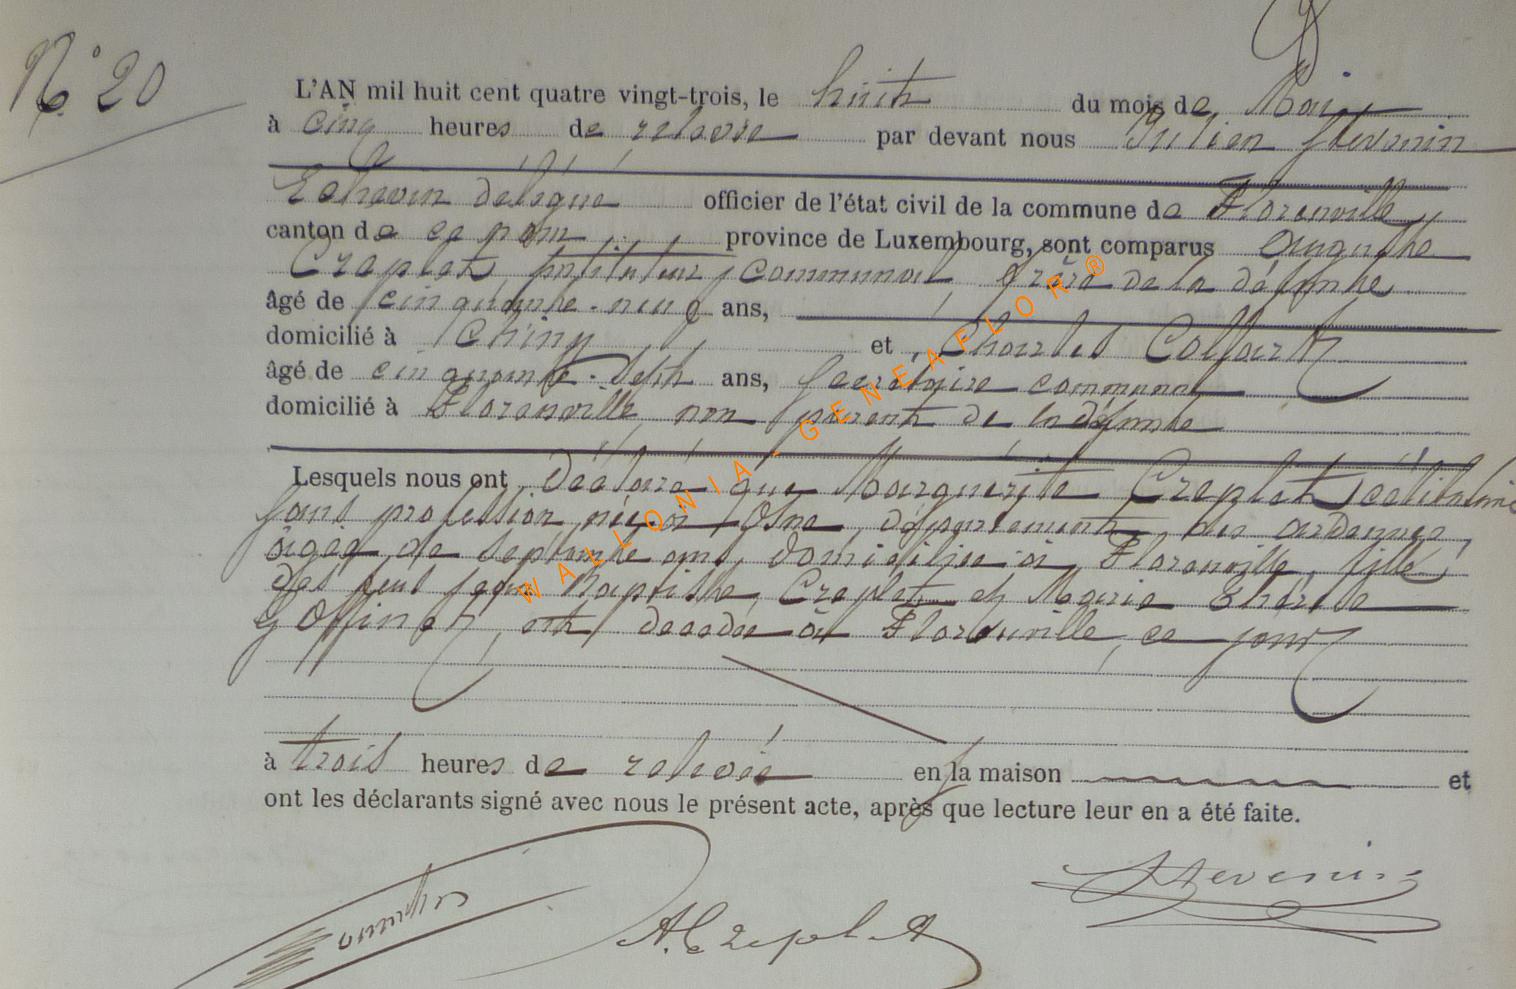 N° 20
D
L'AN mil huit cent quatre vingt-trois, le huit du mois de Mai
à cinq heures de relevée par devant nous Julien Stévenin
Echevin délégué officier de l'état civil de la commune de Florenville
canton de ce nom province de Luxembourg, sont comparus Auguste
Creplet, Instituteur communal frère de la défunte
âgé de cinquante-neuf ans,
domicilié à Chiny et Charles Collart
âgé de cinquante-sept ans, Secrétaire communal
domicilié à Florenville, non parent de la défunte
Lesquels nous ont déclaré que Marguerite Creplet, célibataire
sans profession, née à Osne, département des Ardennes,
âgée de septante ans, domiciliée à Florenville, fille
des feus Jean Baptiste Creplet et Marie Thérèse
Goffinet, est décédée à Florenville, ce jour
à trois heures de relevée en sa maison et
ont les déclarants signé avec nous le présent acte, après que lecture leur en a été faite.
A. Creplet
Stevenin
WALLONIA - GENEAFLOR ®